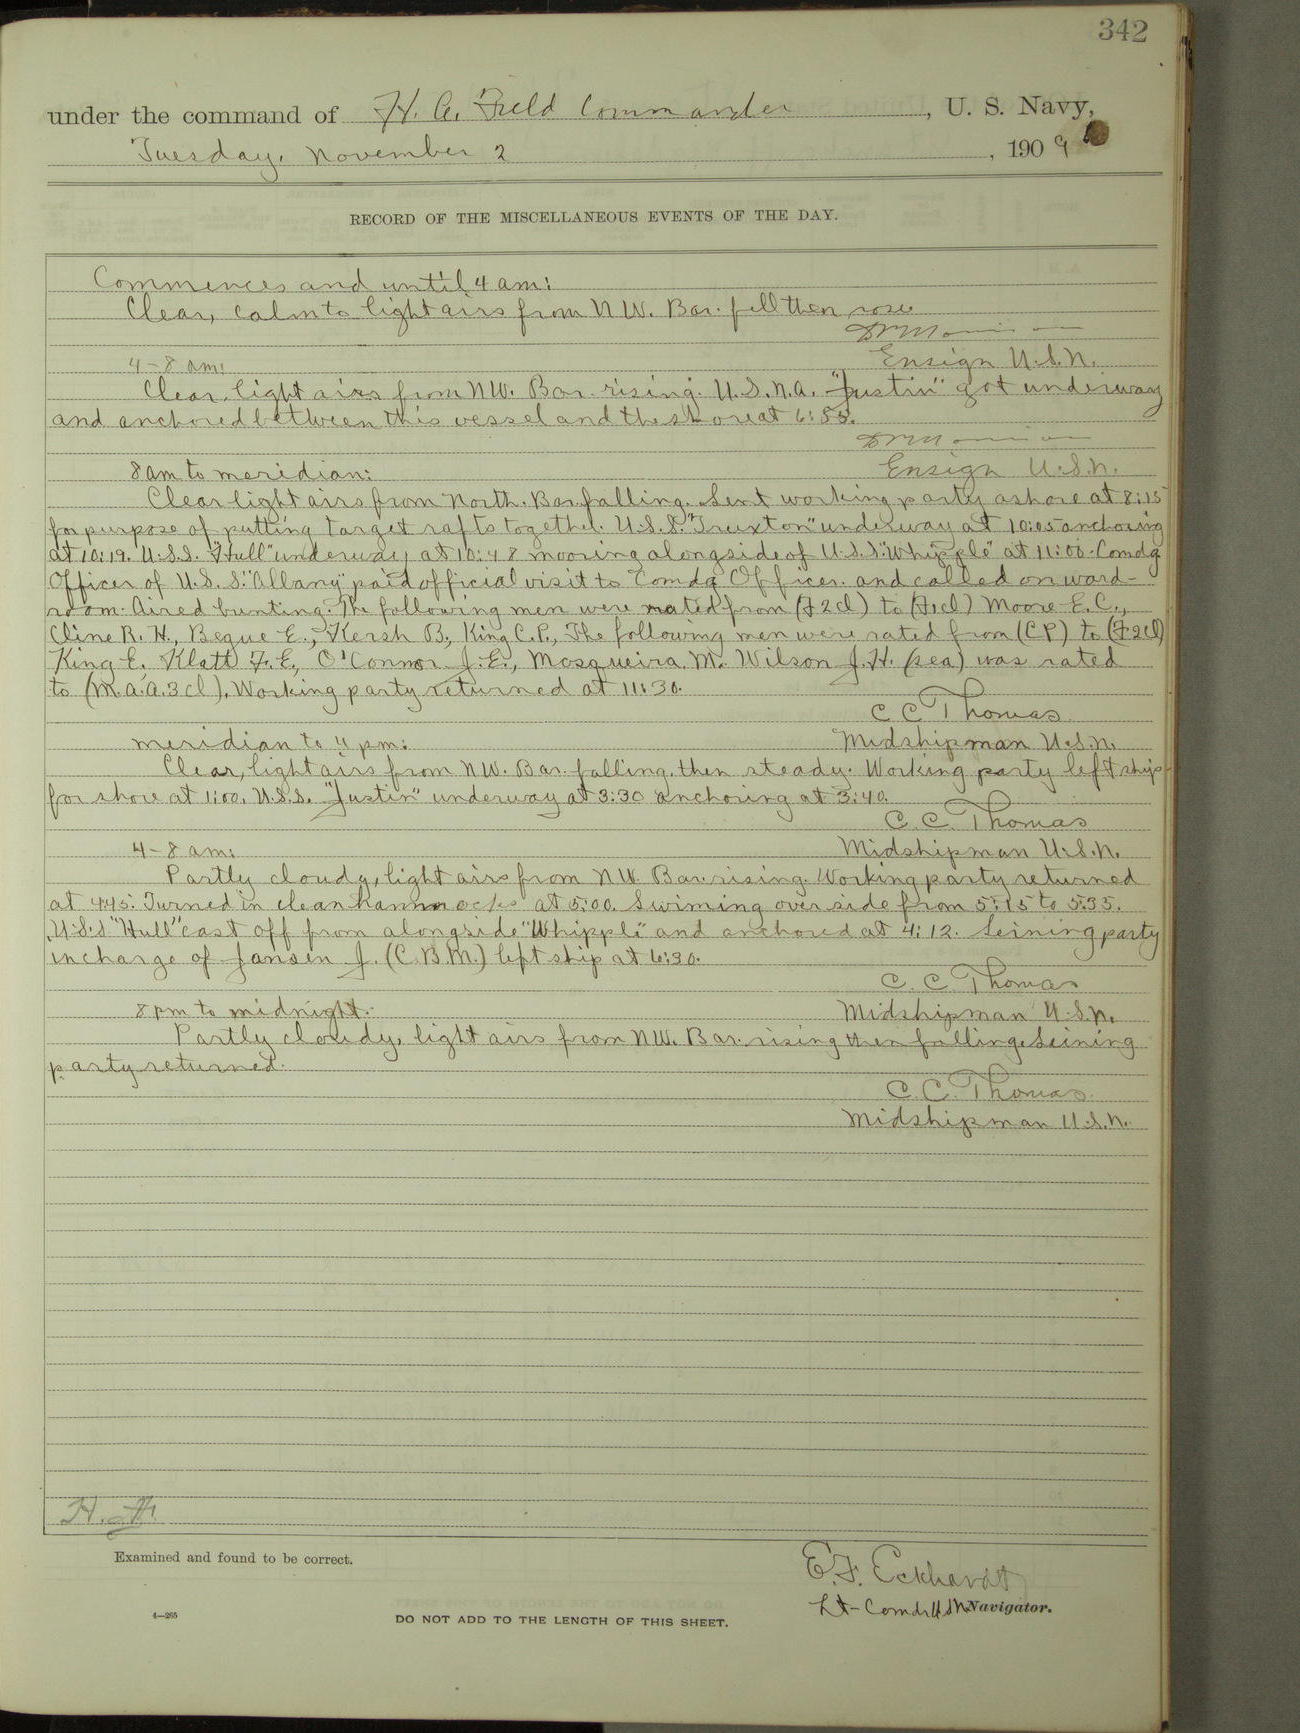 342
under the command of H. A. Field Commander, U. S. Navy,
Tuesday, November 2, 1909
RECORD OF THE MISCELLANEOUS EVENTS OF THE DAY.
Commences and until 4 am:
Clear, calm to light airs from NW. Bar. fell then rose.
Ensign U.S.N.
4-8 am:
Clear, light airs from NW. Bar. rising. U.S.N.A. "Justin" got underway
and anchored between this vessel and the shore at 6:55.
Ensign U.S.N.
8 am to meridian:
Clear light airs from North. Bar. falling. Sent working party ashore at 8:15
for purpose of putting target rafts together. U.S.S. "Truxton" underway at 10:05 anchoring
at 10:19. U.S.S. "Hull" underway at 10:48 mooring alongside of U.S.S. "Whipple" at 11:00. Comdg
Officer of U.S.S. "Albany" paid official visit to Comdg Officer. and called on ward-
room. Aired bunting. The following men were rated from (F2cl) to (F1cl) Moore E.C.,
Cline R.H., Begue E., Kersh B., King C.P., The following men were rated from (CP) to (F2cl)
King E. Klatt F.E., O'Connor J.E., Mosqueira M. Wilson J.H. (sea) was rated
to (M.a.a.3cl). Working party returned at 11:30.
C C Thomas
Midshipman U.S.N.
meridian to 4 pm:
Clear, light airs from NW. Bar. falling, then steady. Working party left ship
for shore at 1:00. U.S.S. "Justin" underway at 3:30 anchoring at 3:40.
C. C. Thomas
Midshipman U.S.N.
4-8 am:
Partly cloudy, light airs from NW. Bar. rising. Working party returned
at 445. Turned in clean hammocks at 5:00. Swiming over side from 5:15 to 5:35.
U.S.S "Hull" cast off from alongside "Whipple" and anchored at 4:12. Seining party
in charge of Jansen J. (C.B.M.) left ship at 6:30.
C. C. Thomas
Midshipman U.S.N.
8 pm to midnight.
Partly cloudy, light airs from NW. Bar. rising then falling. Seining
party returned.
C. C. Thomas.
Midshipman U.S.N.
Examined and found to be correct.
E. F. Eckhardt
Lt-Comdr U S N Navigator.
4—265
DO NOT ADD TO THE LENGTH OF THIS SHEET.